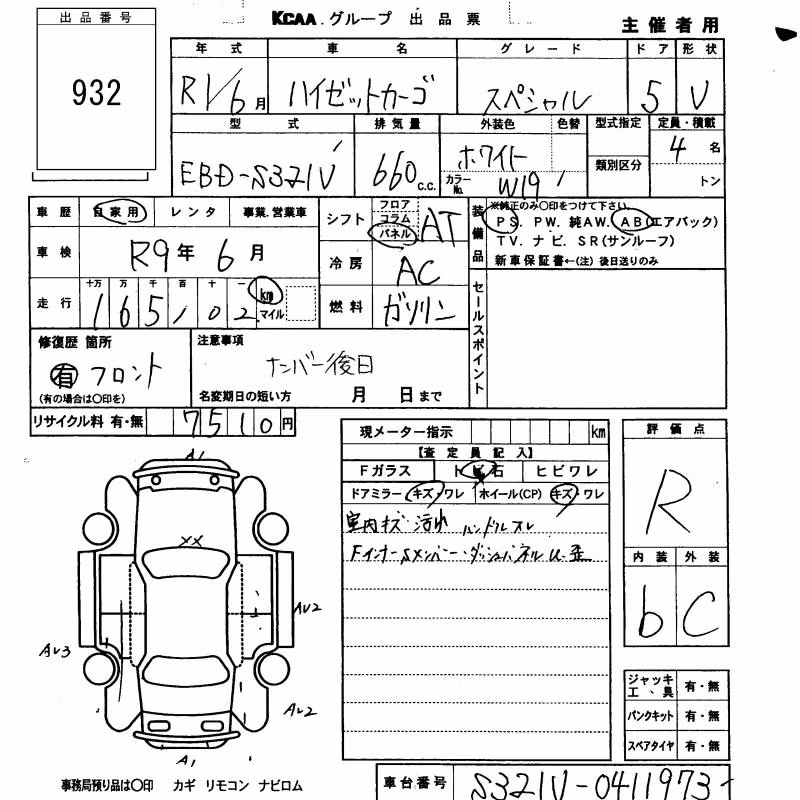 出品番号
932
KCAA.グループ 出品票
主催者用
年式 車名 グレード ドア 形状
R1/6月 ハイゼットカーゴ スペシャル 5 V
型式 排気量 外装色 色替 型式指定 定員・積載
EBD-S321V 660c.c. ホワイト 4名
カラーNo. W19 類別区分 トン
車歴 自家用 レンタ 事業.営業車
車検 R9年 6月
走行 十万 万 千 百 十 一
165102 km マイル
シフト フロア コラム パネル AT
冷房 AC
燃料 ガソリン
装備品
※純正のみ〇印をつけて下さい。
PS. PW. 純AW. AB(エアバック)
TV. ナビ. SR(サンルーフ)
新車保証書←(注)後日送りのみ
セールスポイント
修復歴 箇所
有 フロント
(有の場合は〇印を)
注意事項
ナンバー後日
名変期日の短い方 月 日まで
リサイクル料 有・無 7510円
現メーター指示 km
【査定員記入】
Fガラス トビ石 ヒビワレ
ドアミラー キズ・ワレ ホイール(CP) キズ・ワレ
室内キズ・汚れ ハンドルスレ
Fインナー Sメンバー・ダッシュパネル U・歪
評価点
R
内装 外装
b C
ジャッキ工、具 有・無
パンクキット 有・無
スペアタイヤ 有・無
A1
XX
AU2
AU3
AU2
A1
事務局預り品は〇印 カギ リモコン ナビロム
車台番号 S321V-0411973